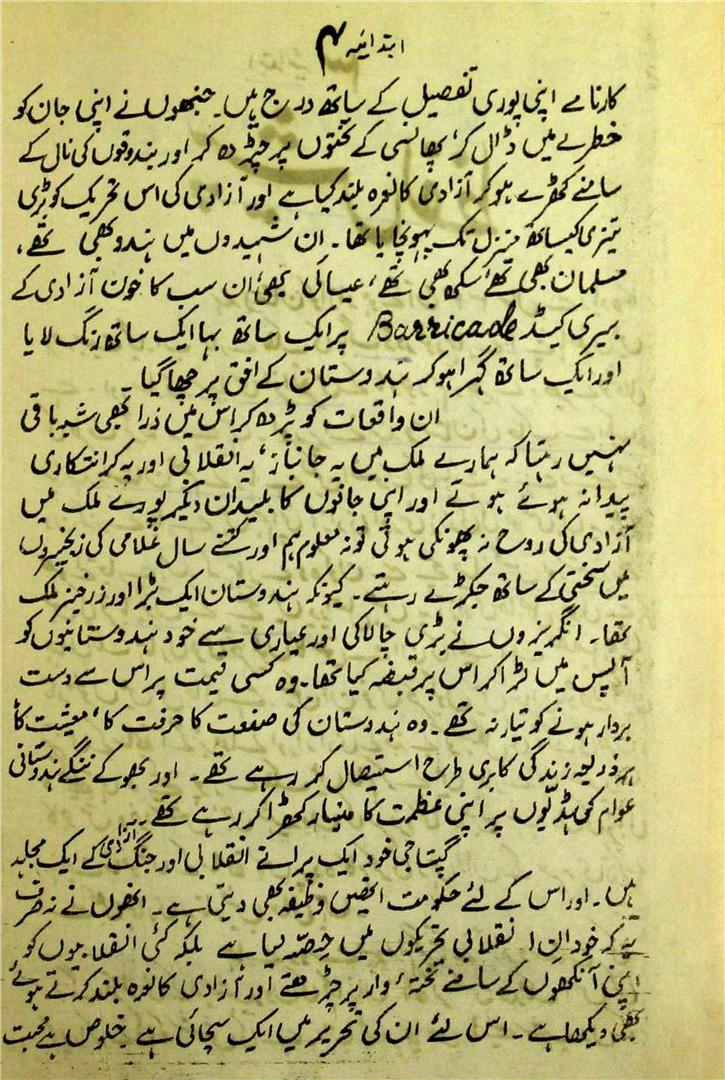 ابتدائیہ ۴
کارنامے اپنی پوری تفصیل کے ساتھ درج ہیں۔ جنھوں نے اپنی جان کو
خطرے میں ڈال کر، پھانسی کے تختوں پر چڑھ کر اور بندوقوں کی نال کے
سامنے کھڑے ہو کر آزادی کا نعرہ بلند کیا ہے اور آزادی کی اس تحریک کو بڑی
تیزی کیساتھ منزل تک پہونچایا تھا۔ ان شہیدوں میں ہندو بھی تھے،
مسلمان بھی تھے، سکھ بھی تھے، عیسائی بھی، ان سب کا خون آزادی کے
بیری کیڈ Barricade پر ایک ساتھ بہا ایک ساتھ رنگ لایا
اور ایک ساتھ گہرا ہو کر ہندوستان کے افق پر چھا گیا۔
ان واقعات کو پڑھ کر اس میں ذرا بھی شبہ باقی
نہیں رہتا کہ ہمارے ملک میں یہ جانباز، یہ انقلابی اور یہ کرانتکاری
پیدا نہ ہوئے ہوتے اور اپنی جانوں کا بلیدان دیکر پورے ملک میں
آزادی کی روح نہ پھونکی ہوتی تو نہ معلوم ہم اور کتنے سال غلامی کی زنجیروں
میں سختی کے ساتھ جکڑے رہتے۔ کیونکہ ہندوستان ایک بڑا اور زرخیز ملک
تھا۔ انگریزوں نے بڑی چالاکی اور عیاری سے خود ہندوستانیوں کو
آپس میں لڑا کر اس پر قبضہ کیا تھا۔ وہ کسی قیمت پر اس سے دست
بردار ہونے کو تیار نہ تھے۔ وہ ہندوستان کی صنعت کا حرفت کا، معیشت کا
ہر ذریعہ زندگی کا بری طرح استیصال کر رہے تھے۔ اور بھوکے ننگے ہندوستانی
عوام کی ہڈیوں پر اپنی عظمت کا مینار کھڑا کر رہے تھے۔۔
گپتا جی خود ایک پرانے انقلابی اور جنگ آزادی کے ایک مجاہد
ہیں۔ اور اس کے لئے حکومت انھیں وظیفہ بھی دیتی ہے۔ انھوں نے نہ صرف
یہ کہ خود ان انقلابی تحریکوں میں حصہ لیا ہے بلکہ کئی انقلابیوں کو
اپنی آنکھوں کے سامنے تختۂ دار پر چڑھتے اور آزادی کا نعرہ بلند کرتے ہوئے
بھی دیکھا ہے۔ اس لئے ان کی تحریر میں ایک سچائی ہے خلوص ہے محبت